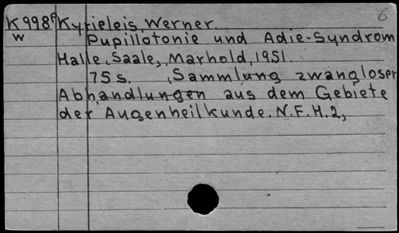 6
K998P Kyrieleis Werner.
w Pupillotonie und Adie-Syndrom
Halle, Saale, Marhold, 1951.
75 s. , Sammlung zwangloser
Abhandlungen aus dem Gebiete
der Augenheilkunde. N.F.H.2,